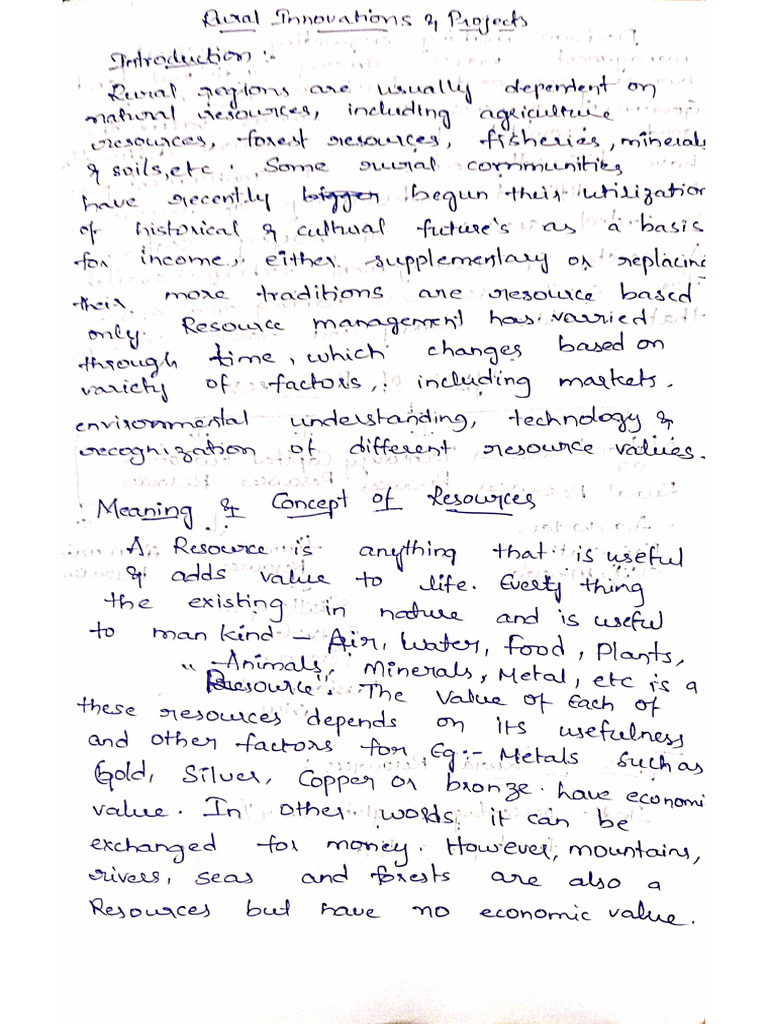 Rural Innovations & Projects
Introduction :-
Rural regions are usually dependent on
natural resources, including agriculture
resources, forest resources, fisheries, minerals
& soils, etc. Some rural communities
have recently bigger begun their utilization
of historical & cultural future's as a basis
for income, either supplementary or replacing
their more traditions are resource based
only. Resource management has varried
through time, which changes based on
variety of factors, including markets.
environmental understanding, technology &
recognization of different resource values.
Meaning & Concept of Resources
A Resource is anything that is useful
& adds value to life. Every thing
the existing in nature and is useful
to man kind - Air, Water, Food, Plants,
Animals, Minerals, Metal, etc is a
"Resource". The value of Each of
these resources depends on its usefulness
and other factors for Eg:- Metals such as
Gold, Silver, Copper or bronze have economi
value. In other words it can be
exchanged for money. However, mountains,
rivers, seas and forests are also a
Resources but have no economic value.